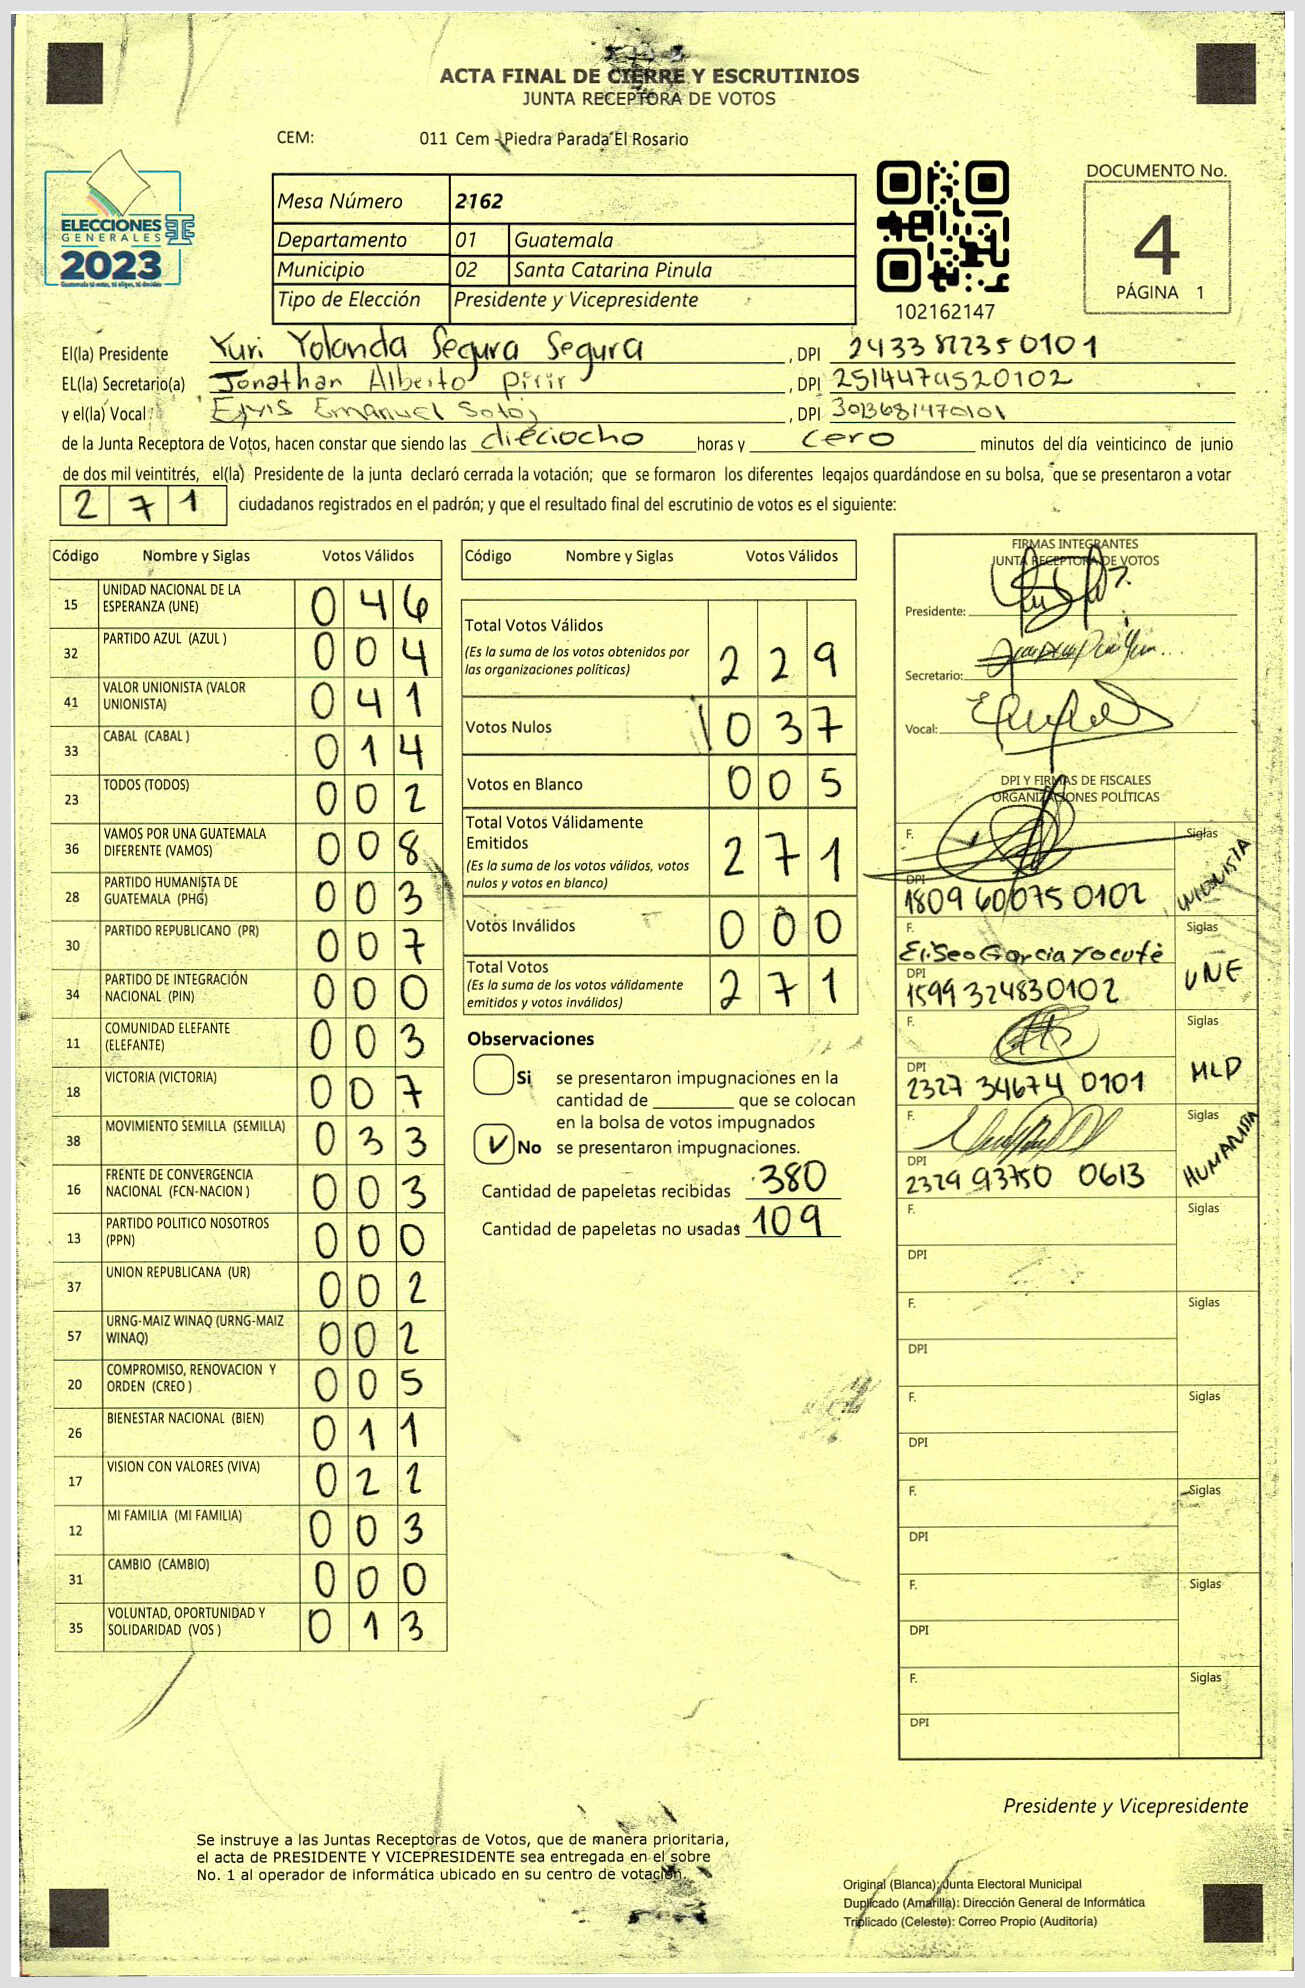 ACTA FINAL DE CIERRE Y ESCRUTINIOS
JUNTA RECEPTORA DE VOTOS
CEM: 011 Cem - Piedra Parada El Rosario
ELECCIONES
GENERALES
2023
Guatemala tú votas, tú eliges, tú decides
Mesa Número 2162
Departamento 01 Guatemala
Municipio 02 Santa Catarina Pinula
Tipo de Elección Presidente y Vicepresidente
102162147
DOCUMENTO No.
4
PÁGINA 1
El(la) Presidente Yuri Yolanda Segura Segura, DPI
EL(la) Secretario(a) Jonathan Alberto Pirir, DPI 2514479520102
y el(la) Vocal: Emanuel, DPI 3013681470101
de la Junta Receptora de Votos, hacen constar que siendo las dieciocho horas y cero minutos del día veinticinco de junio
de dos mil veintitrés, el(la) Presidente de la junta declaró cerrada la votación; que se formaron los diferentes legajos guardándose en su bolsa, que se presentaron a votar
271 ciudadanos registrados en el padrón; y que el resultado final del escrutinio de votos es el siguiente:
Código Nombre y Siglas Votos Válidos
15 UNIDAD NACIONAL DE LA ESPERANZA (UNE) 046
32 PARTIDO AZUL (AZUL ) 004
41 VALOR UNIONISTA (VALOR UNIONISTA) 041
33 CABAL (CABAL ) 014
23 TODOS (TODOS) 002
36 VAMOS POR UNA GUATEMALA DIFERENTE (VAMOS) 008
28 PARTIDO HUMANISTA DE GUATEMALA (PHG) 003
30 PARTIDO REPUBLICANO (PR) 007
34 PARTIDO DE INTEGRACIÓN NACIONAL (PIN) 000
11 COMUNIDAD ELEFANTE (ELEFANTE) 003
18 VICTORIA (VICTORIA) 007
38 MOVIMIENTO SEMILLA (SEMILLA) 033
16 FRENTE DE CONVERGENCIA NACIONAL (FCN-NACION ) 003
13 PARTIDO POLITICO NOSOTROS (PPN) 000
37 UNION REPUBLICANA (UR) 002
57 URNG-MAIZ WINAQ (URNG-MAIZ WINAQ) 002
20 COMPROMISO, RENOVACION Y ORDEN (CREO ) 005
26 BIENESTAR NACIONAL (BIEN) 011
17 VISION CON VALORES (VIVA) 022
12 MI FAMILIA (MI FAMILIA) 003
31 CAMBIO (CAMBIO) 000
35 VOLUNTAD, OPORTUNIDAD Y SOLIDARIDAD (VOS ) 013
Código Nombre y Siglas Votos Válidos
Total Votos Válidos
(Es la suma de los votos obtenidos por
las organizaciones políticas) 229
Votos Nulos 037
Votos en Blanco 005
Total Votos Válidamente
Emitidos
(Es la suma de los votos válidos, votos
nulos y votos en blanco) 271
Votos Inválidos 000
Total Votos
(Es la suma de los votos válidamente
emitidos y votos inválidos) 271
Observaciones
Si se presentaron impugnaciones en la
cantidad de ________ que se colocan
en la bolsa de votos impugnados
✓ No se presentaron impugnaciones.
Cantidad de papeletas recibidas 380
Cantidad de papeletas no usadas 109
FIRMAS INTEGRANTES
JUNTA RECEPTORA DE VOTOS
Presidente:
Secretario:
Vocal:
DPI Y FIRMAS DE FISCALES
ORGANIZACIONES POLÍTICAS
F. Siglas UNIONISTA
DPI 1809 60075 0102
F. Eliseo Garcia Yocuté Siglas UNE
DPI 1599 324830102
F. Siglas MLP
DPI 2327 34674 0101
F. Siglas HUMANISTA
DPI 2329 93750 0613
F. Siglas
DPI
F. Siglas
DPI
F. Siglas
DPI
F. Siglas
DPI
F. Siglas
DPI
F. Siglas
DPI
Presidente y Vicepresidente
Se instruye a las Juntas Receptoras de Votos, que de manera prioritaria,
el acta de PRESIDENTE Y VICEPRESIDENTE sea entregada en el sobre
No. 1 al operador de informática ubicado en su centro de votación.
Original (Blanca): Junta Electoral Municipal
Duplicado (Amarilla): Dirección General de Informática
Triplicado (Celeste): Correo Propio (Auditoría)